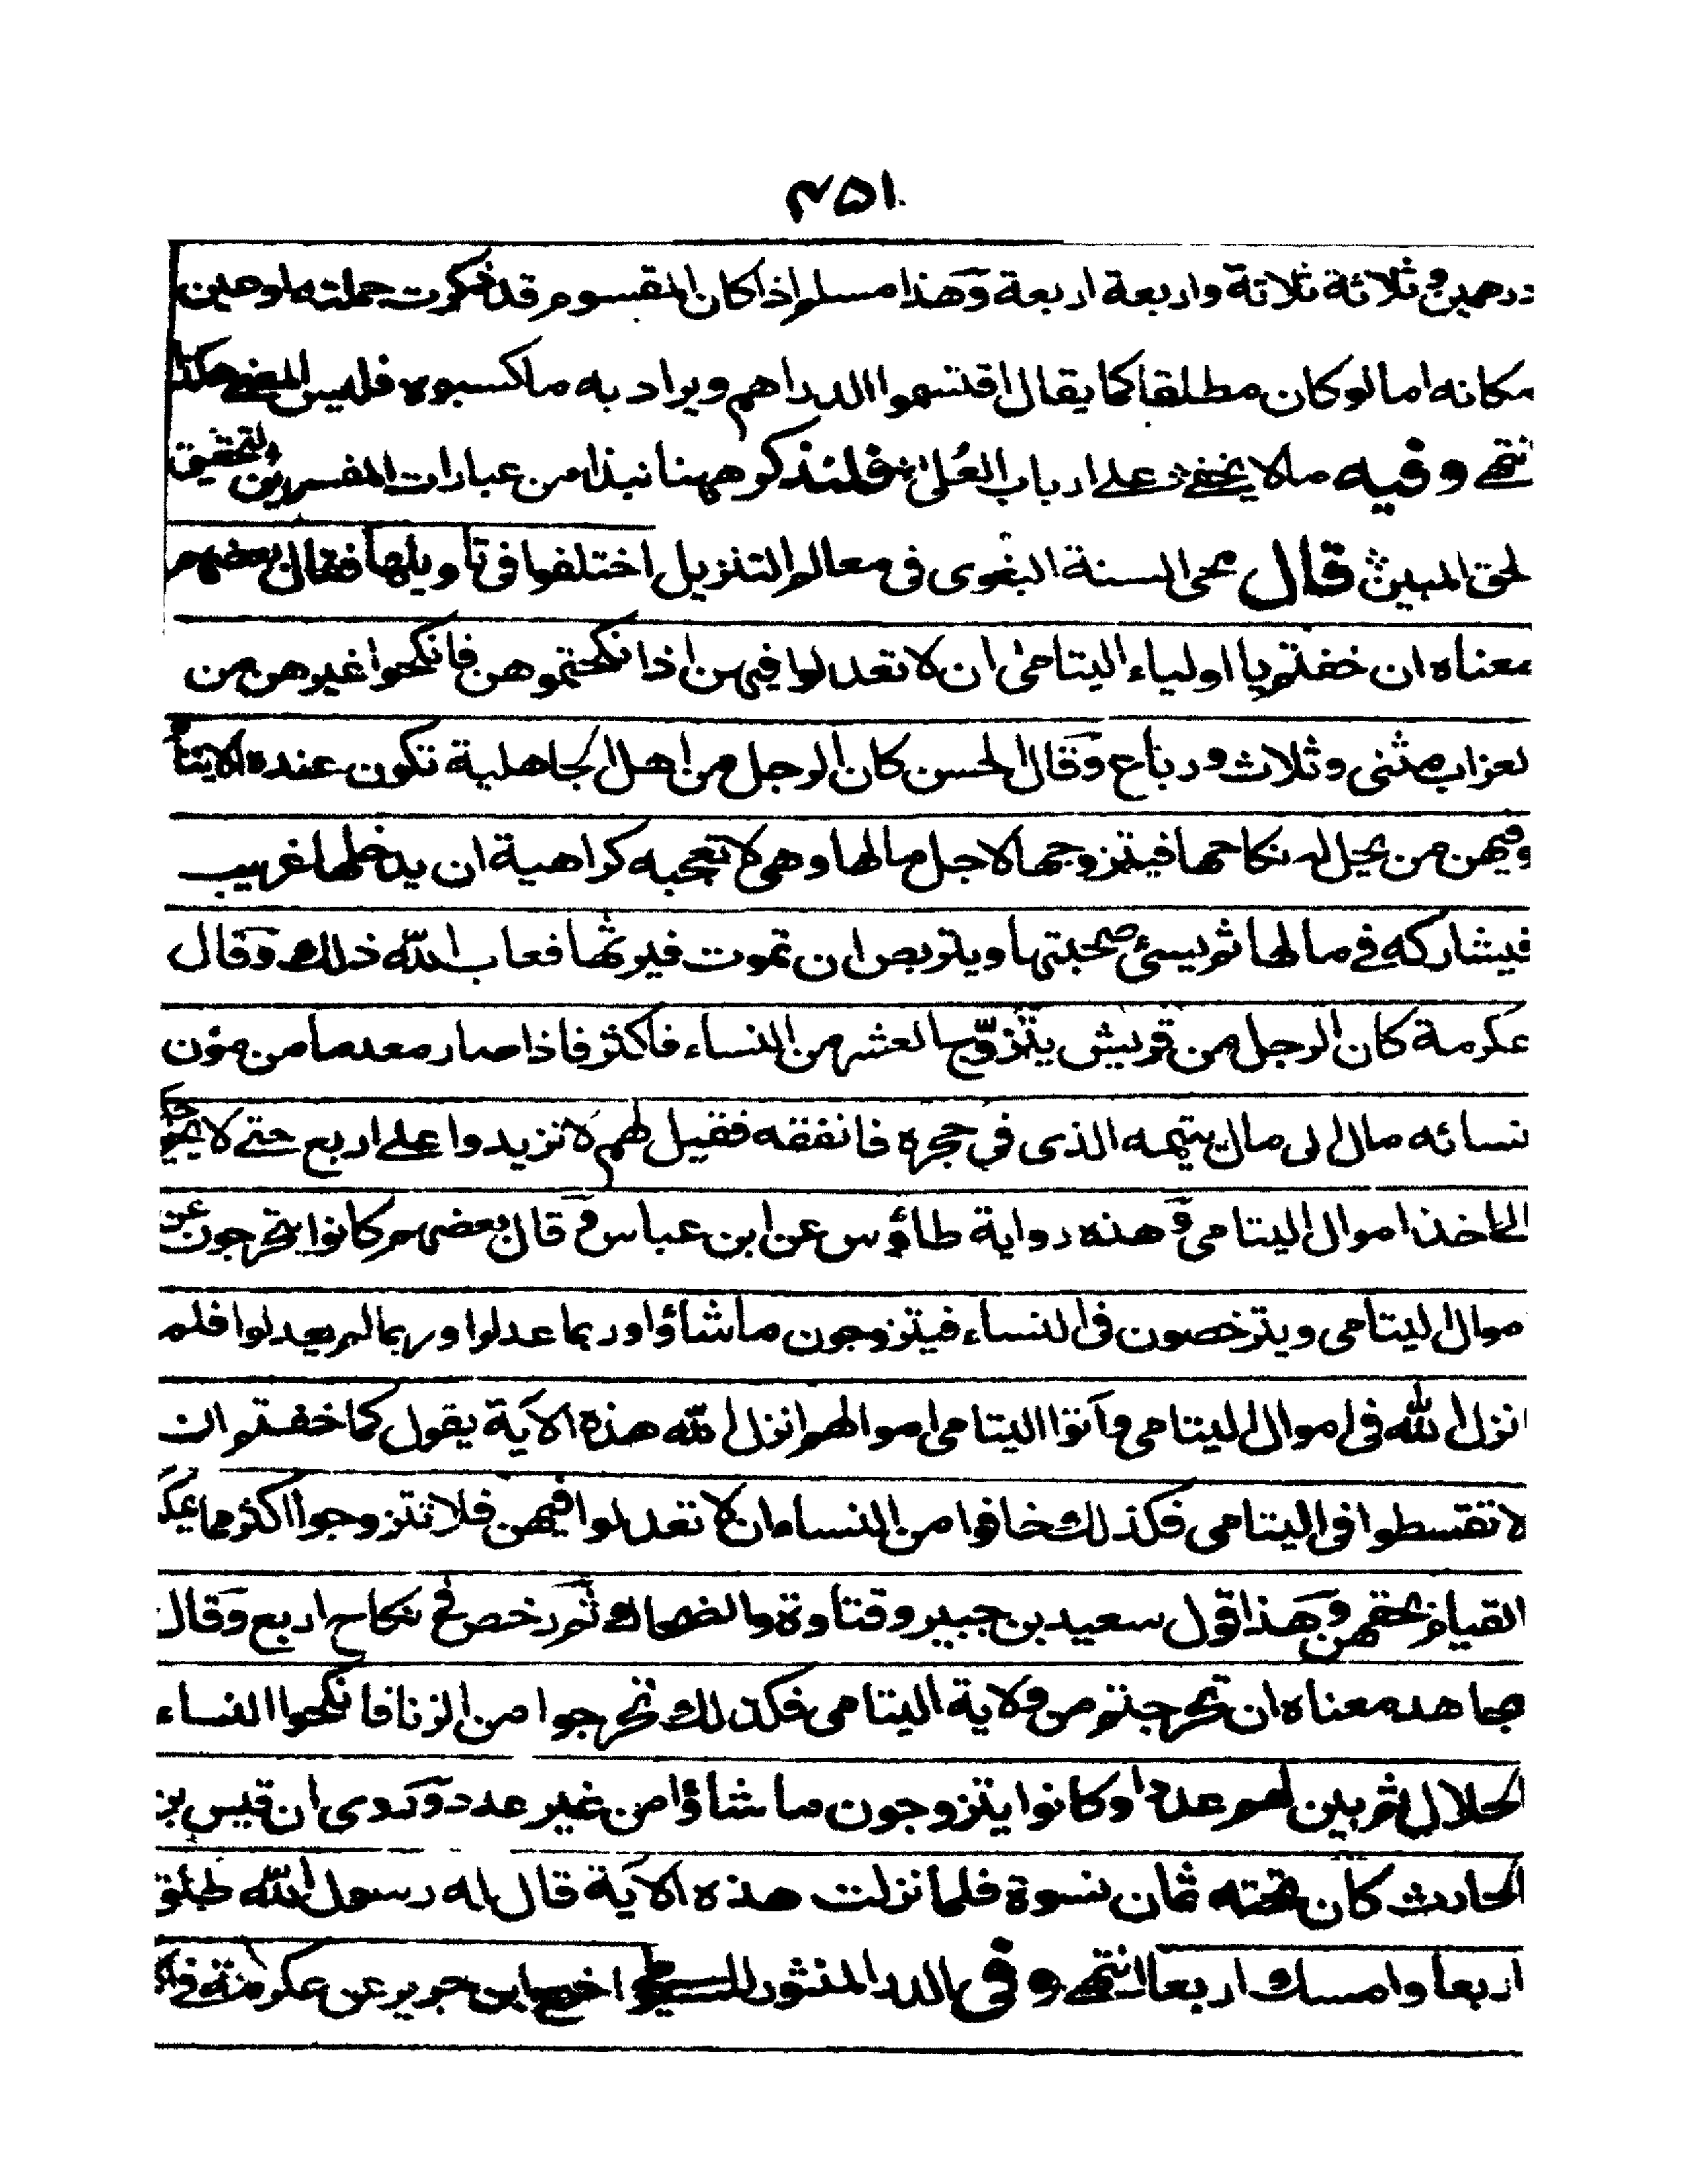 ۴۵۱
درهمين وثلاثة ثلاثة واربعة اربعة وهذا مسلم اذا كان المقسوم قد ذكرت جملته اوعين
مكانه اما لو كان مطلقا كما يقال اقتسموا الدراهم ويراد به ما كسبوه فليس المعنے هكذا
نتهے وفيه ما لا يخفے علے ارباب العُلیٰ فلنذكر ههنا نبذا من عبارات المفسرين لتحقيق
لحق المبين قال محی السنة البغوی فی معالم التنزيل اختلفوا فی تاويلها فقال بعضهم
معناه ان خفتم يا اولياء اليتامیٰ ان لا تعدلوا فيهن اذا نكحتموهن فانكحوا غيرهن من
لعزاب مثنی وثلاث ورباع وقال الحسن كان الرجل من اهل الجاهلية تكون عنده الايتام
وفيهن من يحل له نكاحها فيتزوجها لاجل مالها وهی لا تعجبه كراهية ان يدخلها غريب
فيشاركه فے مالها ثم يسئ صحبتها ويتربص ان تموت فيرثها فعاب الله ذلك وقال
عكرمة كان الرجل من قريش يتزوّج العشر من النساء فاكثر فاذا صار معدما من مؤن
نسائه مال الی مال يتيمه الذی فی حجره فانفقه فقيل لهم لا تزيدوا علے اربع حتے لا يحوجكم
الے اخذ اموال اليتامی وهذه رواية طاؤس عن ابن عباس وقال بعضهم كانوا يتحرجون عن
موال اليتامی ويترخصون فی النساء فيتزوجون ما شاؤا وربما عدلوا وربما لم يعدلوا فلم
انزل الله فی اموال اليتامی وآتوا اليتامی اموالهم انزل الله هذه الآية يقول كما خفتم ان
لا تقسطوا فی اليتامی فكذلك خافوا من النساء ان لا تعدلوا فيهن فلا تتزوجوا اكثر مما يمكنكم
القيام بحقهن وهذا قول سعيد بن جبير وقتاوة والضحاك ثم رخص فے نكاح اربع وقال
مجاهد معناه ان تحرجتم من ولاية اليتامی فكذلك تحرجوا من الزنا فانكحوا النساء
لحلال ثم بين لهم عددا وكانوا يتزوجون ما شاؤا من غير عدد وروی ان قيس بن
الحارث كان تحته ثمان نسوة فلما نزلت هذه الآية قال له رسول الله طلق
اربعا وامسك اربعا انتهے وفی الدر المنثور للسيوطے اخرج ابن جرير عن عكرمة فے